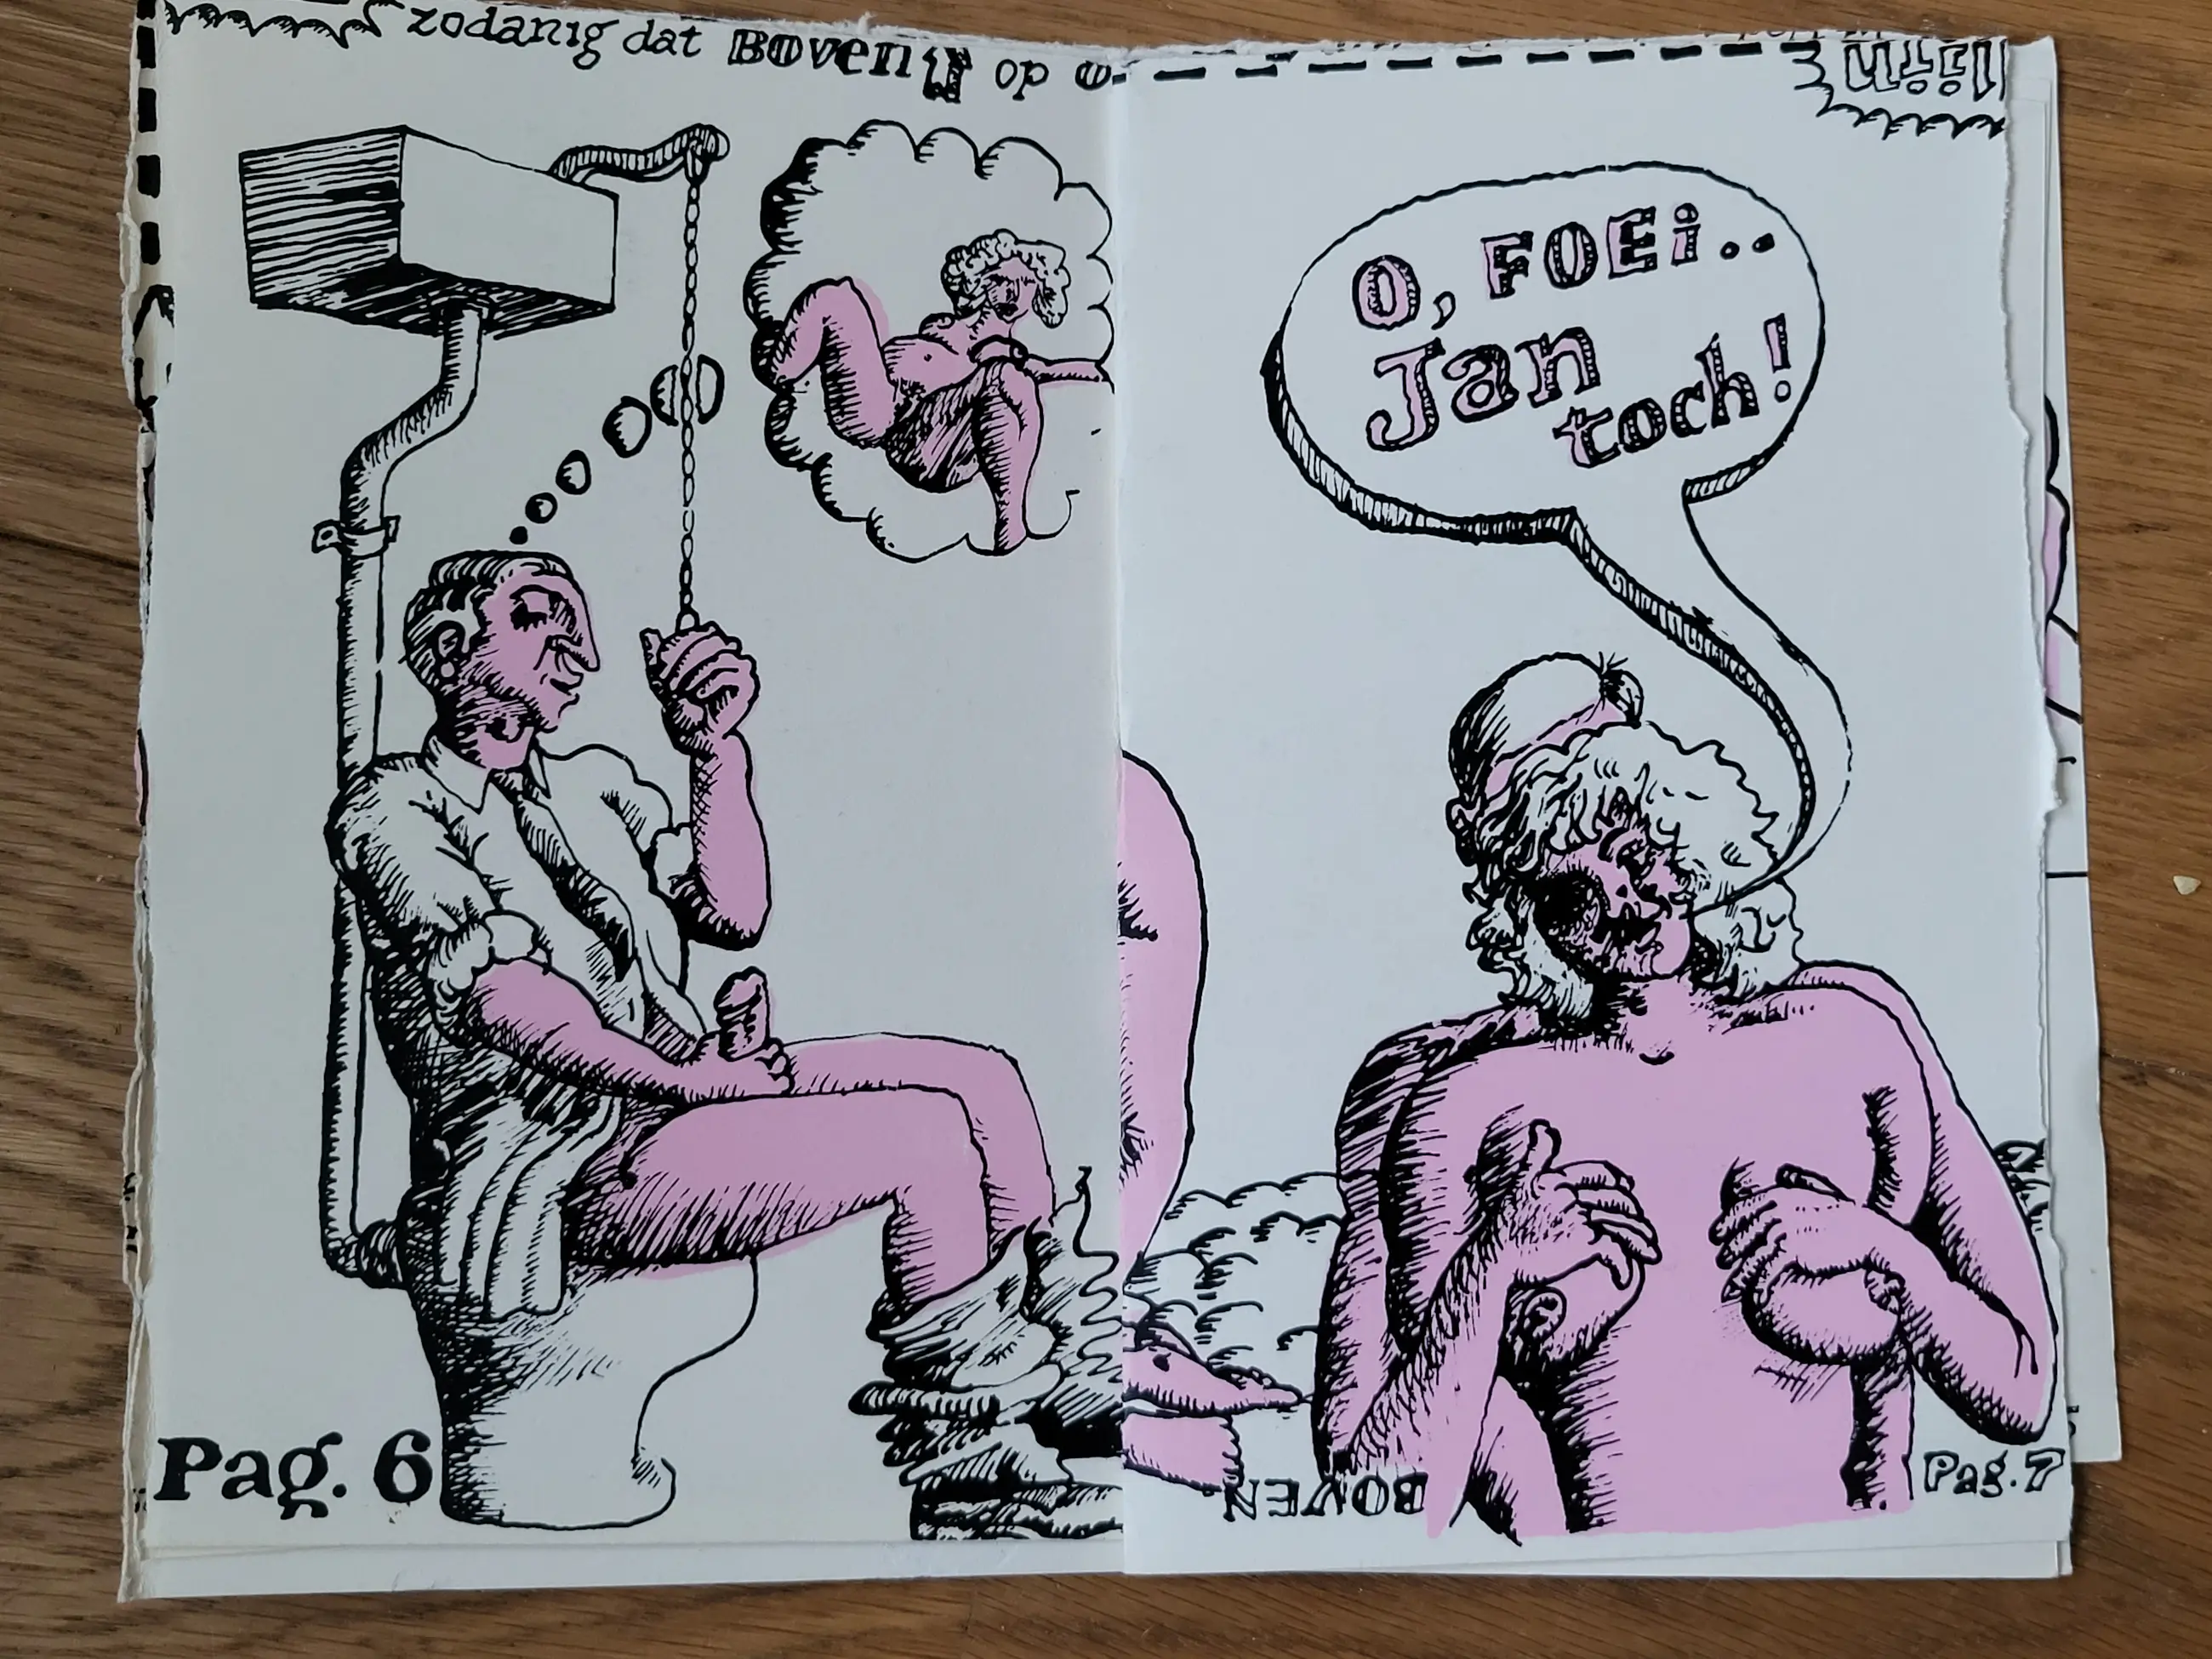 zodanig dat BOVEN op
O, FOEi..
Jan
toch!
BOVEN
Pag. 6
Pag. 7